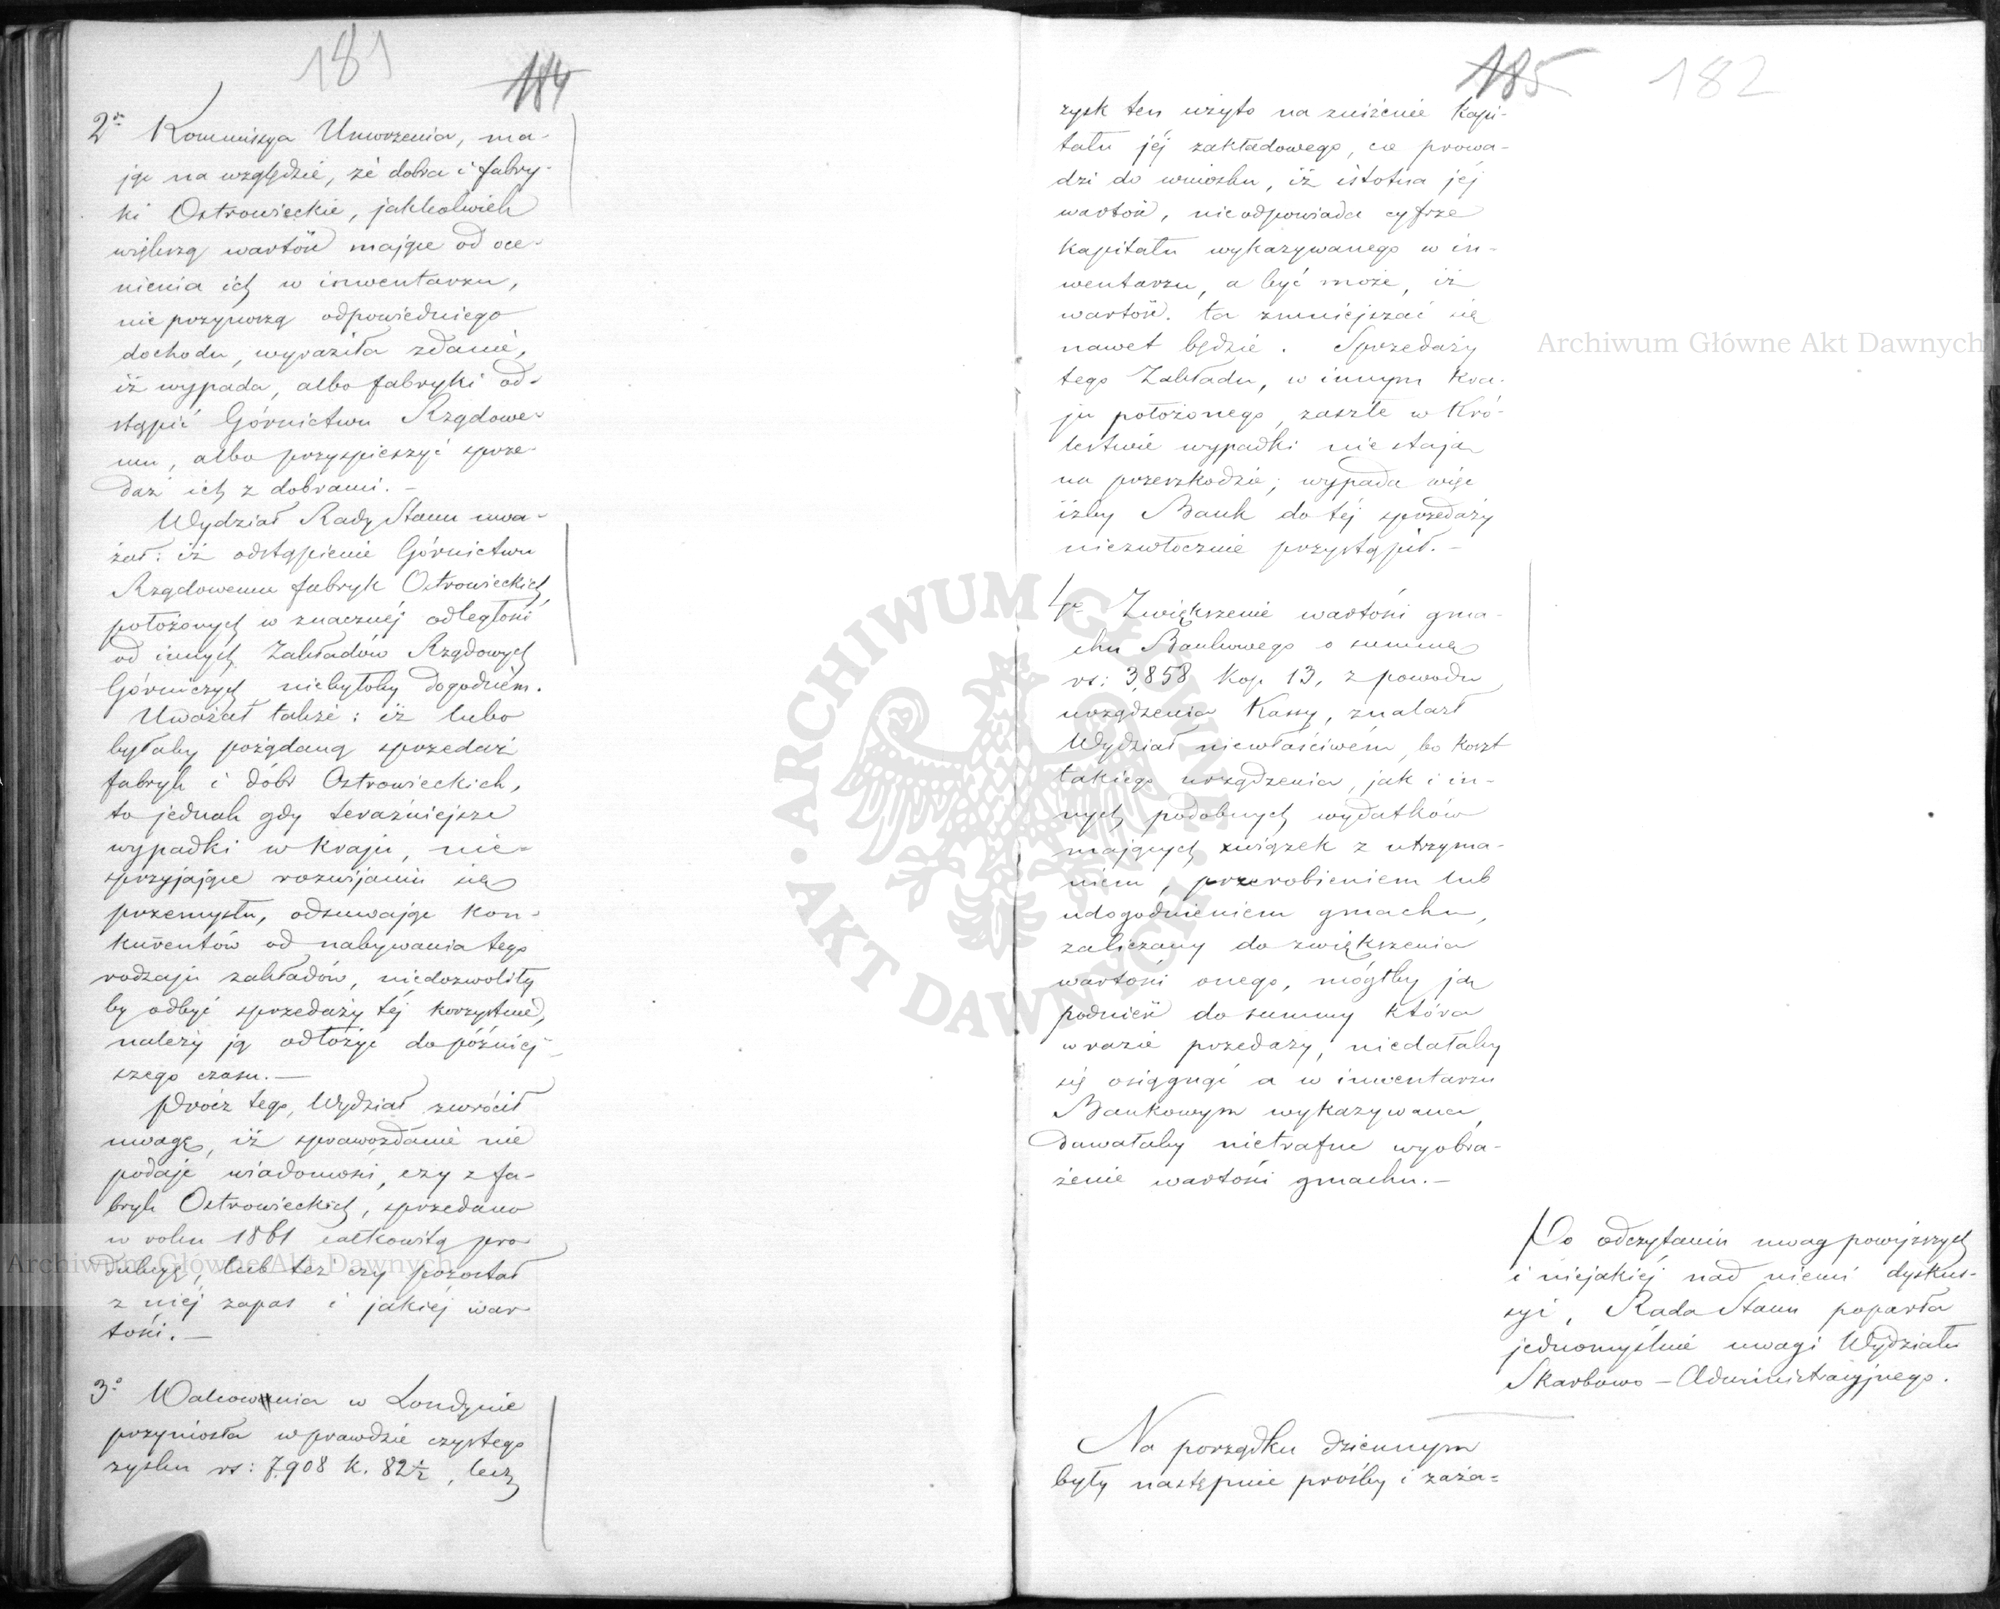 181
184
2o Kommissya Umorzenia, ma-
jąc na względzie, że dobra i fabry-
ki Ostrowieckie, jakkolwiek
większą wartość mające od oce-
nienia ich w inwentarzu,
nie przynoszą odpowiedniego
dochodu, wyraziła zdanie,
iż wypada, albo fabryki od-
stąpić Górnictwu Rządowe-
mu, albo przyspieszyć sprze-
daż ich z dobrami. —
Wydział Rady Stanu uwa-
żał: iż odstąpienie Górnictwu
Rządowemu fabryk Ostrowieckich
położonych w znacznéj odległości
od innych Zakładów Rządowych
Górniczych, niebyłoby dogodném.
Uważał także: iż lubo
byłaby pożądaną sprzedaż
fabryk i dóbr Ostrowieckich,
to jednak gdy teraźniejsze
wypadki w kraju, nie-
sprzyjające rozwijaniu się
przemysłu, odsuwając kon-
kurentów od nabywania tego
rodzaju zakładów, niedozwoliły
by odbyć sprzedaży téj korzystnie,
należy ją odłożyć do późniéj-
szego czasu. —
Prócz tego, Wydział zwrócił
uwagę, iż sprawozdanie nie
podaje wiadomości, czy z fa-
bryk Ostrowieckich, sprzedano
w roku 1861 całkowitą pro
dukcyę, lub też czy pozostał
z niéj zapas i jakiéj war
tości. —
3o Walcownia w Londynie
przyniosła wprawdzie czystego
zysku rs: 7,908 k. 82½, lecz
185
182
zysk ten użyto na zniżenie kapi-
tału jéj zakładowego, co prowa-
dzi do wniosku, iż istotna jéj
wartość, nieodpowiada cyfrze
kapitału wykazywanego w in-
wentarzu, a być może, iż
wartość ta zmniejszać się
nawet będzie. Sprzedaży
tego Zakładu, w innym kra-
ju położonego, zaszłe w Kró-
lestwie wypadki nie stają
na przeszkodzie; wypada więc
iżby Bank do téj sprzedaży
niezwłocznie przystąpił. —
4o Zwiększenie wartości gma-
chu Bankowego o summę
rs: 3,858 kop 13, z powodu
urządzenia Kassy, znalazł
Wydział niewłaściwém, bo koszt
takiego urządzenia, jak i in-
nych podobnych wydatków
mających związek z utrzyma-
niem, przerobieniem lub
udogodnieniem gmachu,
zaliczany do zwiększenia
wartości onego, mógłby ją
podnieść do summy która
w razie przedaży, niedałaby
się osiągnąć a w inwentarzu
Bankowym wykazywana,
dawałaby nietrafne wyobra-
żenie wartości gmachu. —
Po odczytaniu uwag powyższych
i niejakiéj nad niemi dyskus-
syi, Rada Stanu poparła
jednomyślnie uwagi Wydziału
Skarbowo-Administracyjnego.
Na porządku dziennym
były następnie prośby i zaża-
Archiwum Główne Akt Dawnych
Archiwum Główne Akt Dawnych
ARCHIWUM GŁÓWNE AKT DAWNYCH